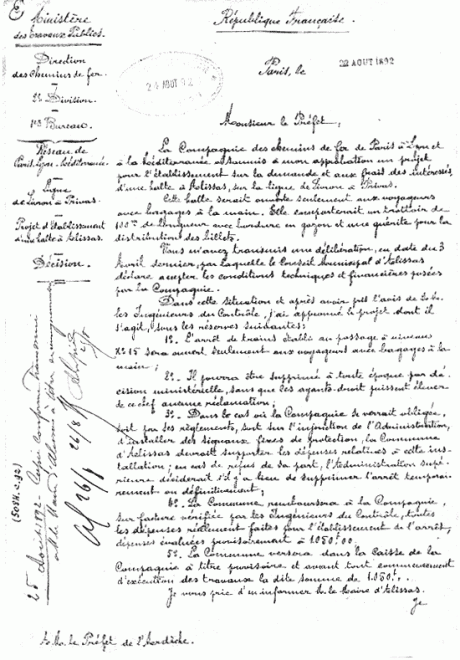 Ministère
des Travaux Publics.
République Française.
Direction
des chemins de fer.
2e Division.
1er Bureau.
Réseau de
Paris-Lyon-Méditerranée.
Ligne
de Livron à Privas.
Projet d'établissement
d'une halte à Alissas.
Décision.
Paris, le 22 AOUT 1892
Monsieur le Préfet,
La Compagnie des chemins de fer de Paris à Lyon et
à la Méditerranée a soumis à mon approbation un projet
pour l'établissement sur la demande et aux frais des intéressés,
d'une halte à Alissas, sur la ligne de Livron à Privas.
Cette halte serait ouverte seulement aux voyageurs
avec bagages à la main. Elle comporterait un trottoir de
100m de longueur avec bordure en gazon et une guérite pour la
distribution des billets.
Vous m'avez transmis une délibération, en date du 3
Avril dernier, par laquelle le Conseil Municipal d'Alissas
déclare accepter les conditions techniques et financières posées
par la Compagnie.
Dans cette situation et après avoir pris l'avis de M.M.
les Ingénieurs du Contrôle, j'ai approuvé le projet dont il
s'agit, sous les réserves suivantes:
1o. L'arrêt de trains établi au passage à niveau
No 15 sera ouvert seulement aux voyageurs avec bagages à la
main;
2o. Il pourra être supprimé à toute époque par dé-
cision ministérielle, sans que les ayants-droit puissent élever
de ce chef aucune réclamation;
3o. Dans le cas où la Compagnie se verrait obligée,
soit par ses règlements, soit sur l'injonction de l'Administration,
d'installer des signaux fixes de protection, la Commune
d'Alissas devrait supporter les dépenses relatives à cette ins-
tallation; en cas de refus de sa part, l'Administration supé-
rieure déciderait s'il y a lieu de supprimer l'arrêt tempora-
irement ou définitivement;
4o. La Commune remboursera à la Compagnie,
sur facture vérifiée par les Ingénieurs du Contrôle, toutes
les dépenses réellement faites pour l'établissement de l'arrêt,
dépenses évaluées provisoirement à 1050f.00.
5o. La Commune versera dans la Caisse de la
Compagnie à titre provisoire et avant tout commencement
d'exécution des travaux la dite somme de 1.050f.
Je vous prie d'en informer M. le Maire d'Alissas.
Je
A M. le Préfet de l'Ardèche.